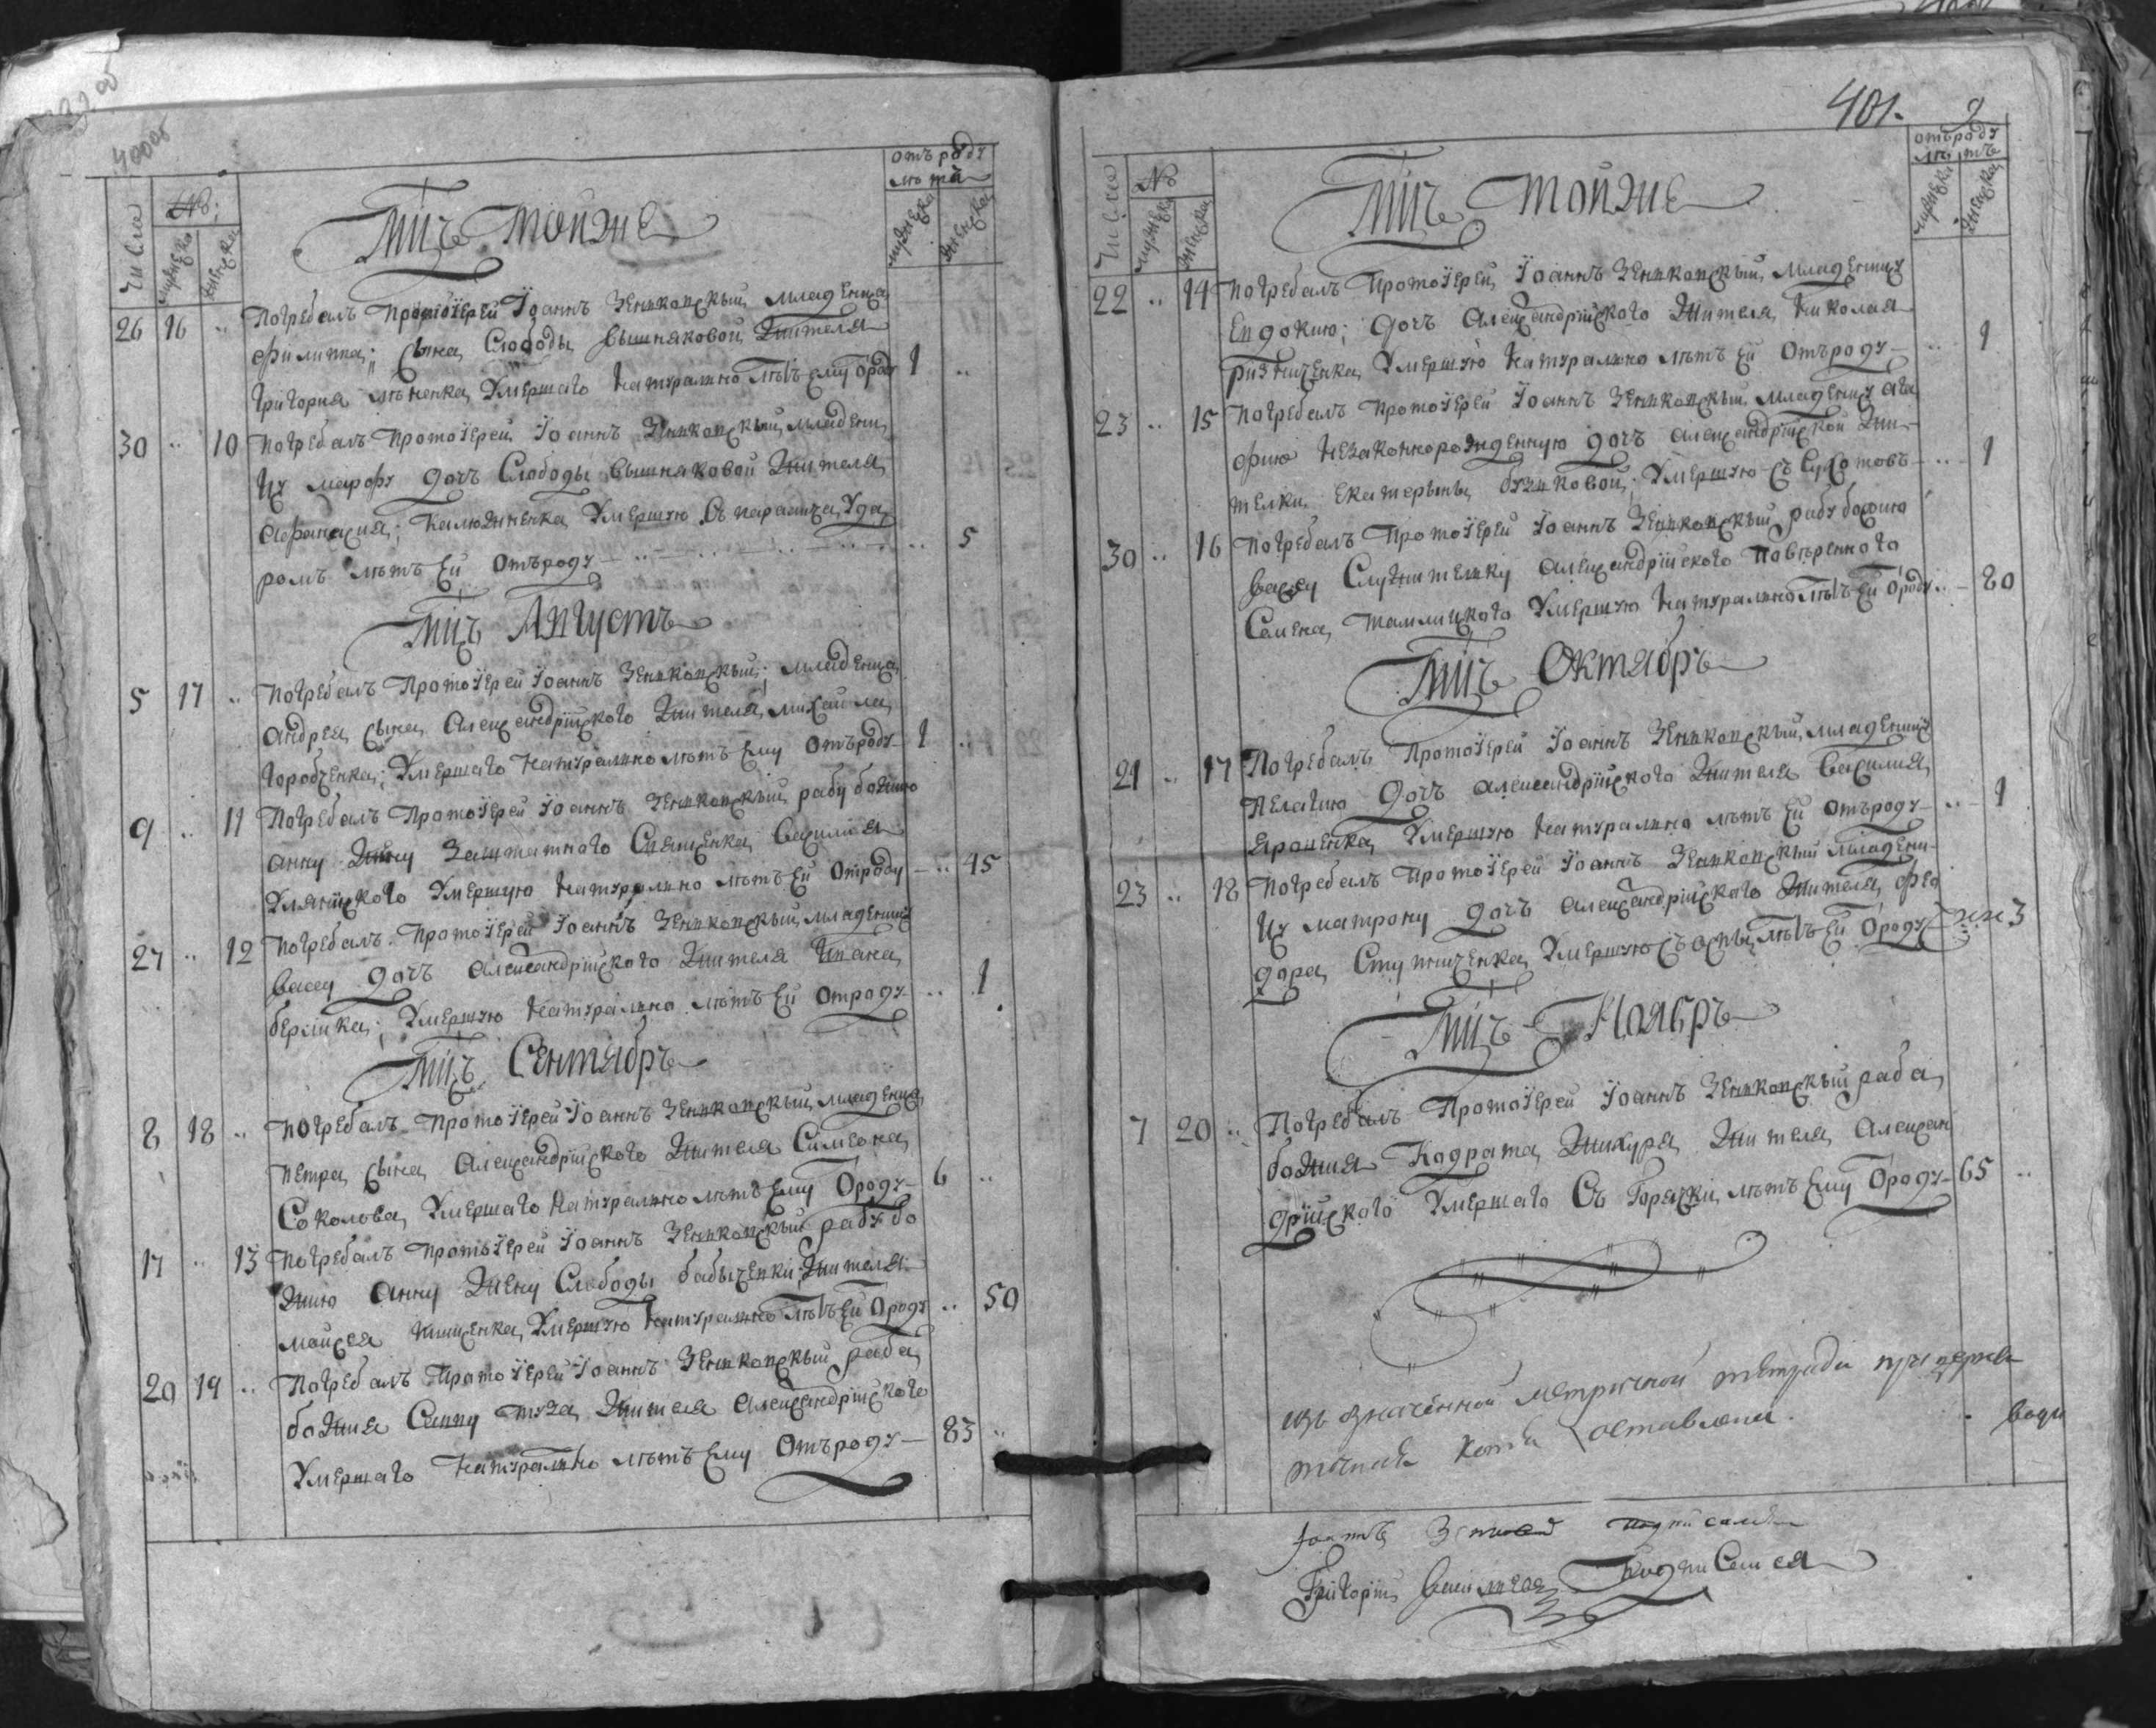 400об
Числа
№:
мужеска
женска
отъ роду
лѣта
мужеска
женска
Мцъ тойже
26 16 .. Погребалъ Протоіерей Іоаннъ Зеньковскый младенца
Филиппа; сына Слободы вышняковой жителя
Григория Умершаго натурално лѣтъ ему Ѿроду 1 ..
30 .. 10 Погребалъ Протоіерей Іоаннъ Зеньковскый младени
цу марфу дочь Слободы вышняковой жителя
Афанасия; Калюжненка Умершую
ромъ лѣтъ ей Отъроду .. 5
Мцъ Августъ
5 17 .. Погребалъ Протоіерей Іоаннъ Зеньковскый; младенца
андрея сына Александрійского жителя михайла
Горобченка; Умершаго натурално лѣтъ ему Отъроду 1 ..
9 .. 11 Погребалъ Протоіерей Іоаннъ Зеньковскый рабу божию
анну жену заштатного василия
Умершую натурално лѣтъ ей Отроду .. 45
27 .. 12 Погребалъ Протоіерей Іоаннъ Зеньковскый младеницу
вассу дочь александрійского жителя Ивана
Умершую натурално лѣтъ ей Отроду .. 1
Мцъ Сентябръ
8 18 .. Погребалъ Протоіерей Іоаннъ Зеньковскый младенца
Петра сына Александрійского жителя Симеона
Соколова Умершаго натурално лѣтъ ему Ѿроду 6 ..
17 .. 13 Погребалъ Протоіерей Іоаннъ Зеньковскый рабу бо
жию анну жену Слободы жителя
мойсея Умершую натурално лѣтъ ей Ѿроду .. 50
20 19 .. Погребалъ Протоіерей Іоаннъ Зеньковскый раба
божия Савву жителя александрійского
Умершаго натурално лѣтъ ему Отъроду 83 ..
401.
Числа
№
мужеска
женска
отъроду
лѣтъ
мужеска
женска
Мцъ тойже
22 .. 14 Погребалъ Протоіерей Іоаннъ Зеньковскый младеницу
Евдокию; дочь Александрійского жителя николая
Умершую натурално лѣтъ ей Отъроду .. 1
23 .. 15 Погребалъ Протоіерей Іоаннъ Зеньковскый младеницу ага
фию незаконнорожденную дочь александрійской жи
телки екатерыны Умершую съ .. 1
30 .. 16 Погребалъ Протоіерей Іоаннъ Зеньковскый рабу божию
вассу Служителку александрійского Повѣренного
Семена Умершую натурално лѣтъ ей Ѿроду .. 80
Мцъ Октябръ
21 .. 17 Погребалъ Протоіерей Іоаннъ Зеньковскый младеницу
Пелагию дочь александрійского жителя василия
Умершую натурално лѣтъ ей отъроду .. 1
23 .. 18 Погребалъ Протоіерей Іоаннъ Зеньковскый младени
цу матрону дочь александрійского жителя фео
дора Умершую съ оспы лѣтъ ей Ѿроду 3
Мцъ Ноябръ
7 20 .. Погребалъ Протоіерей Іоаннъ Зеньковскый раба
божия Кодрата жителя Алексан
дрійского Умершаго Съ Горячки лѣтъ ему Ѿроду 65 ..
метричной тетради
оставлена.
подписалъ
Григорій Подписался